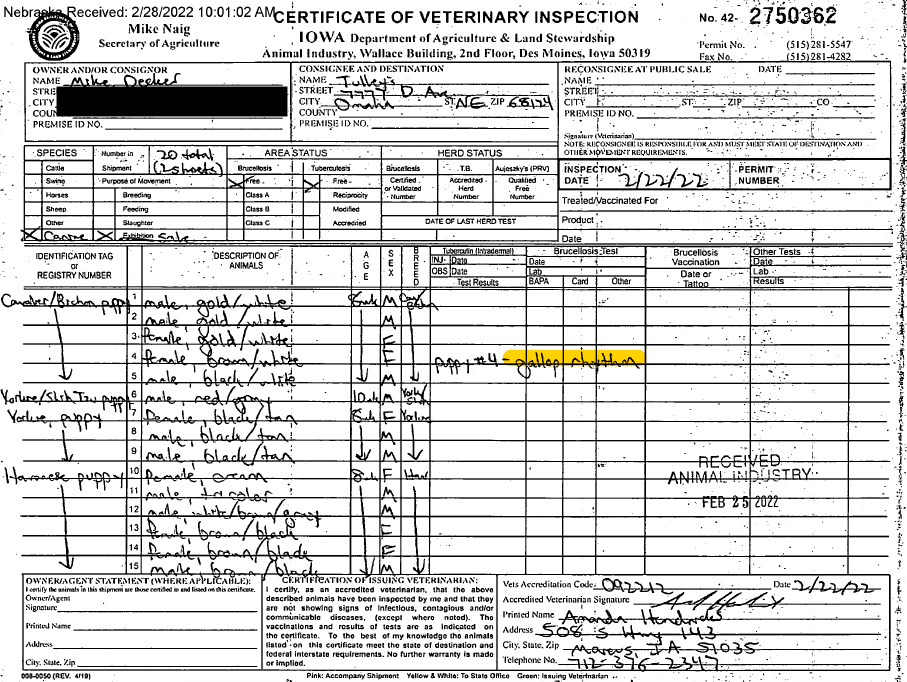 Nebraska Received: 2/28/2022 10:01:02 AM
CERTIFICATE OF VETERINARY INSPECTION
No. 42- 2750362
Mike Naig
Secretary of Agriculture
IOWA Department of Agriculture & Land Stewardship
Animal Industry, Wallace Building, 2nd Floor, Des Moines, Iowa 50319
Permit No. (515)281-5547
Fax No. (515)281-4282
OWNER AND/OR CONSIGNOR
NAME Mike Decker
STREET
CITY
COUNTY
PREMISE ID NO.
CONSIGNEE AND DESTINATION
NAME Tulley's
STREET 7777 D. Ave
CITY Omaha ST. NE ZIP 68124
COUNTY
PREMISE ID NO.
RECONSIGNEE AT PUBLIC SALE DATE
NAME
STREET
CITY ST. ZIP CO
PREMISE ID NO.
Signature (Veterinarian)
NOTE: RECONSIGNEE IS RESPONSIBLE FOR AND MUST MEET STATE OF DESTINATION AND OTHER MOVEMENT REQUIREMENTS.
SPECIES
Cattle
Swine
Horses
Sheep
Other
X Canine
Number in Shipment 20 total (2 sheets)
Purpose of Movement
Breeding
Feeding
Slaughter
X Exhibition Sale
AREA STATUS
Brucellosis
X Free
Class A
Class B
Class C
Tuberculosis
X Free
Reciprocity
Modified
Accredited
HERD STATUS
Brucellosis Certified or Validated Number
T.B. Accredited Herd Number
Aujeszky's (PRV) Qualified Free Number
DATE OF LAST HERD TEST
INSPECTION DATE 2/22/22
PERMIT NUMBER
Treated/Vaccinated For
Product
Date
IDENTIFICATION TAG or REGISTRY NUMBER
DESCRIPTION OF ANIMALS
AGE
SEX
BREED
Tuberculin (Intradermal)
INJ. Date
OBS Date
Test Results
Brucellosis Test
Date
Lab
BAPA Card Other
Brucellosis Vaccination
Date or Tattoo
Other Tests
Date
Lab
Results
Cavalier/Bichon puppy 1 male, gold/white 8wk M
2 male, gold/white M
3 female, gold/white F
4 female, brown/white F puppy #4 - gallop rhythm
5 male, black/white M
Yorkie/Shih Tzu puppy 6 male, red/gray 10wk M
Yorkie, puppy 7 Female, black/tan 8wk F Yorkie
8 male, black/tan M
9 male, black/tan M
Havanese puppy 10 Female, cream 8wk F Hav
11 male, tricolor M
12 male, white/brown/gray M
13 female, brown/black F
14 female, brown/black F
15 male, brown/black M
RECEIVED
ANIMAL INDUSTRY
FEB 25 2022
OWNER/AGENT STATEMENT (WHERE APPLICABLE):
I certify the animals in this shipment are those certified to and listed on this certificate.
Owner/Agent
Signature
Printed Name
Address
City, State, Zip
CERTIFICATION OF ISSUING VETERINARIAN:
I certify, as an accredited veterinarian, that the above
described animals have been inspected by me and that they
are not showing signs of infectious, contagious and/or
communicable diseases, (except where noted). The
vaccinations and results of tests are as indicated on
the certificate. To the best of my knowledge the animals
listed on this certificate meet the state of destination and
federal interstate requirements. No further warranty is made
or implied.
Vets Accreditation Code 092212 Date 2/22/22
Accredited Veterinarian Signature
Printed Name Amanda Hendricks
Address 508 S Hwy 143
City, State, Zip Marcus, IA 51035
Telephone No. 712-376-2347
008-0050 (REV. 4/19)
Pink: Accompany Shipment Yellow & White: To State Office Green: Issuing Veterinarian